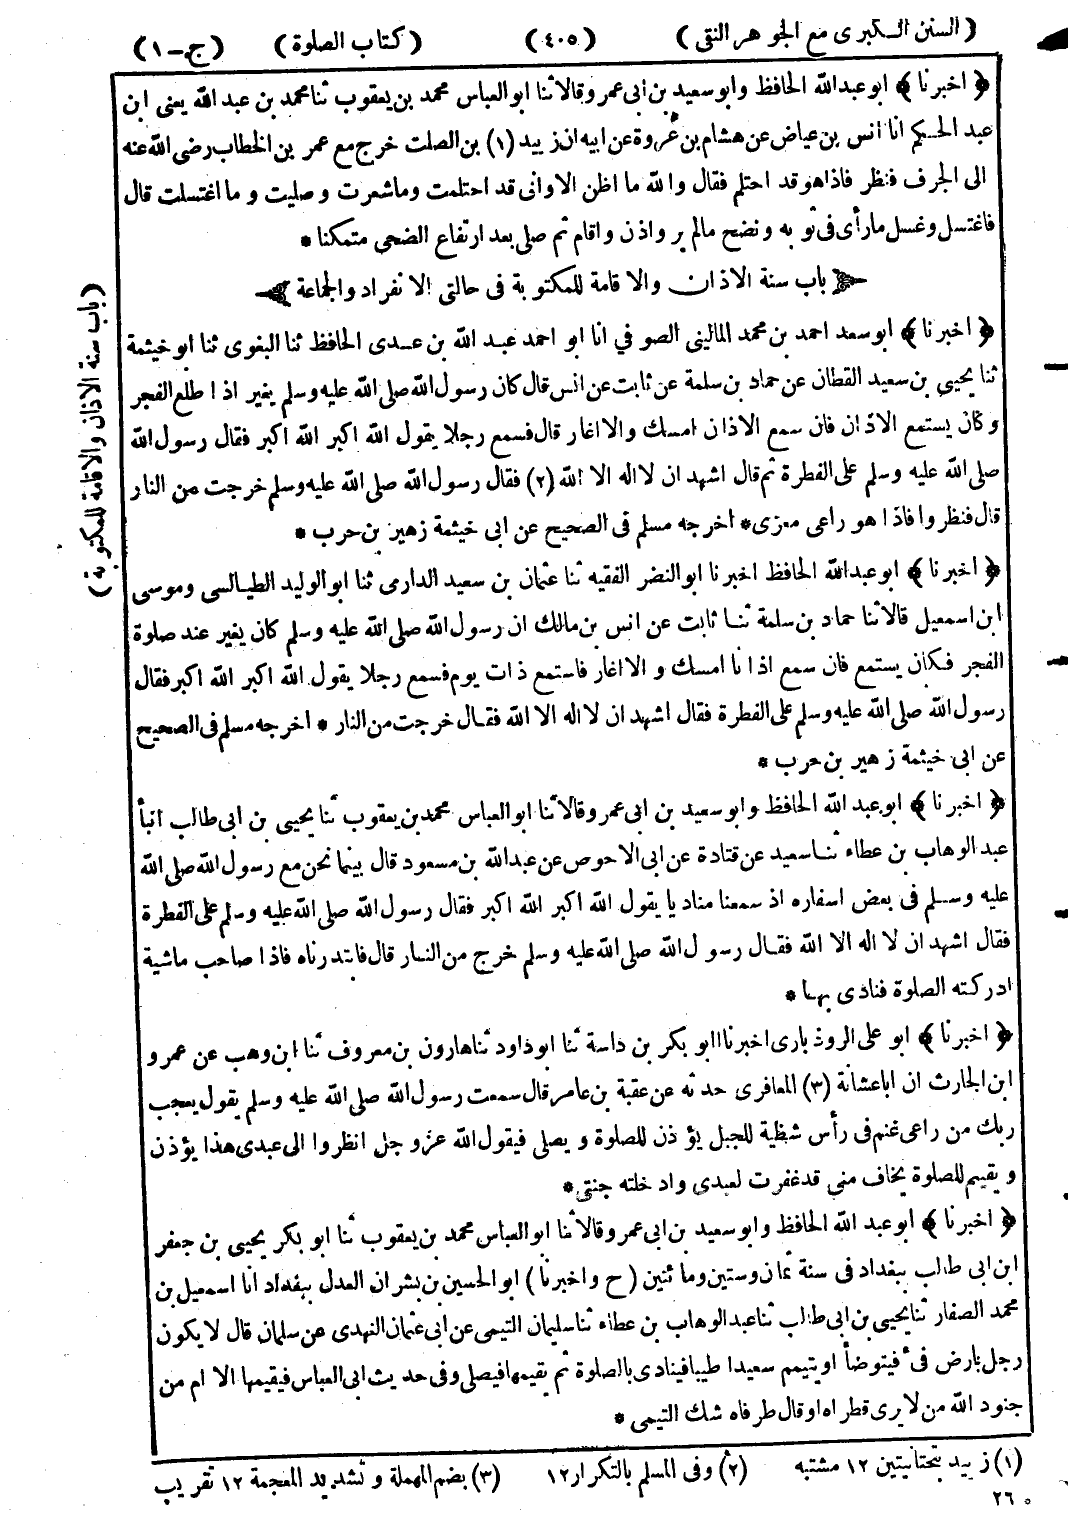 (السنن الكبرى مع الجوهر النقى) (٤٠٥) (كتاب الصلوة) (ج-١)
﴿اخبرنا﴾ ابو عبد الله الحافظ وابو سعيد بن ابى عمرو قالا ثنا ابو العباس محمد بن يعقوب ثنا محمد بن عبد الله يعنى ابن
عبد الحكم انا انس بن عياض عن هشام بن عروة عن ابيه ان زييد (١) بن الصلت خرج مع عمر بن الخطاب رضى الله عنه
الى الجرف فنظر فاذا هو قد احتلم فقال والله ما اظن الا وانى قد احتلمت وما شعرت وصليت وما اغتسلت قال
فاغتسل وغسل ما رأى فى ثوبه ونضح ما لم ير واذن واقام ثم صلى بعد ارتفاع الضحى متمكنا *
باب سنة الاذان والاقامة للمكتوبة فى حالتى الانفراد والجماعة
﴿اخبرنا﴾ ابو سعد احمد بن محمد المالينى الصوفي انا ابو احمد عبد الله بن عدى الحافظ ثنا البغوى ثنا ابو خيثمة
ثنا يحيى بن سعيد القطان عن حماد بن سلمة عن ثابت عن انس قال كان رسول الله صلى الله عليه وسلم يغير اذا طلع الفجر
وكان يستمع الاذان فان سمع الاذان امسك والا اغار قال فسمع رجلا يقول الله اكبر الله اكبر فقال رسول الله
صلى الله عليه وسلم على الفطرة ثم قال اشهد ان لا اله الا الله (٢) فقال رسول الله صلى الله عليه وسلم خرجت من النار
قال فنظروا فاذا هو راعى معزى* اخرجه مسلم فى الصحيح عن ابى خيثمة زهير بن حرب *
﴿اخبرنا﴾ ابو عبد الله الحافظ اخبرنا ابو النضر الفقيه ثنا عثمان بن سعيد الدارمى ثنا ابو الوليد الطيالسى وموسى
ابن اسمعيل قالا ثنا حماد بن سلمة ثنا ثابت عن انس بن مالك ان رسول الله صلى الله عليه وسلم كان يغير عند صلوة
الفجر فكان يستمع فان سمع اذانا امسك والا اغار فاستمع ذات يوم فسمع رجلا يقول الله اكبر الله اكبر فقال
رسول الله صلى الله عليه وسلم على الفطرة فقال اشهد ان لا اله الا الله فقال خرجت من النار * اخرجه مسلم فى الصحيح
عن ابى خيثمة زهير بن حرب *
﴿اخبرنا﴾ ابو عبد الله الحافظ وابو سعيد بن ابى عمرو قالا ثنا ابو العباس محمد بن يعقوب ثنا يحيى بن ابى طالب انبأ
عبد الوهاب بن عطاء ثنا سعيد عن قتادة عن ابى الاحوص عن عبد الله بن مسعود قال بينما نحن مع رسول الله صلى الله
عليه وسلم فى بعض اسفاره اذ سمعنا مناديا يقول الله اكبر الله اكبر فقال رسول الله صلى الله عليه وسلم على الفطرة
فقال اشهد ان لا اله الا الله فقال رسول الله صلى الله عليه وسلم خرج من النار قال فابتدرناه فاذا صاحب ماشية
ادركته الصلوة فنادى بها *
﴿اخبرنا﴾ ابو على الروذبارى اخبرنا ابو بكر بن داسة ثنا ابو داود ثنا هارون بن معروف ثنا ابن وهب عن عمرو
ابن الحارث ان ابا عشانة (٣) المعافرى حدثه عن عقبة بن عامر قال سمعت رسول الله صلى الله عليه وسلم يقول يعجب
ربك من راعى غنم فى رأس شظية للجبل يؤذن للصلوة ويصلى فيقول الله عز وجل انظروا الى عبدى هذا يؤذن
ويقيم للصلوة يخاف منى قد غفرت لعبدى وادخلته جنتى*
﴿اخبرنا﴾ ابو عبد الله الحافظ وابو سعيد بن ابى عمرو قالا ثنا ابو العباس محمد بن يعقوب ثنا ابو بكر يحيى بن جعفر
ابن ابى طالب ببغداد فى سنة ثمان وستين ومائتين (ح واخبرنا) ابو الحسين بن بشران العدل ببغداد انا اسمعيل بن
محمد الصفار ثنا يحيى بن ابى طالب ثنا عبد الوهاب بن عطاء ثنا سليمان التيمى عن ابى عثمان النهدى عن سلمان قال لا يكون
رجل بارض فى ٴ فيتوضأ او يتيمم سعيدا طيبا فينادى بالصلوة ثم يقيمها فيصلى وفى حديث ابى العباس فيقيمها الا ام من
جنود الله من لا يرى قطراه او قال طرفاه شك التيمى *
(١) زييد بتحتانيتين ١٢ مشتبه (٢) وفى المسلم بالتكرار ١٢ (٣) بضم المهملة وتشديد المعجمة ١٢ تقريب
٢٦٠
(باب سنة الاذان والاقامة للمكتوبة)